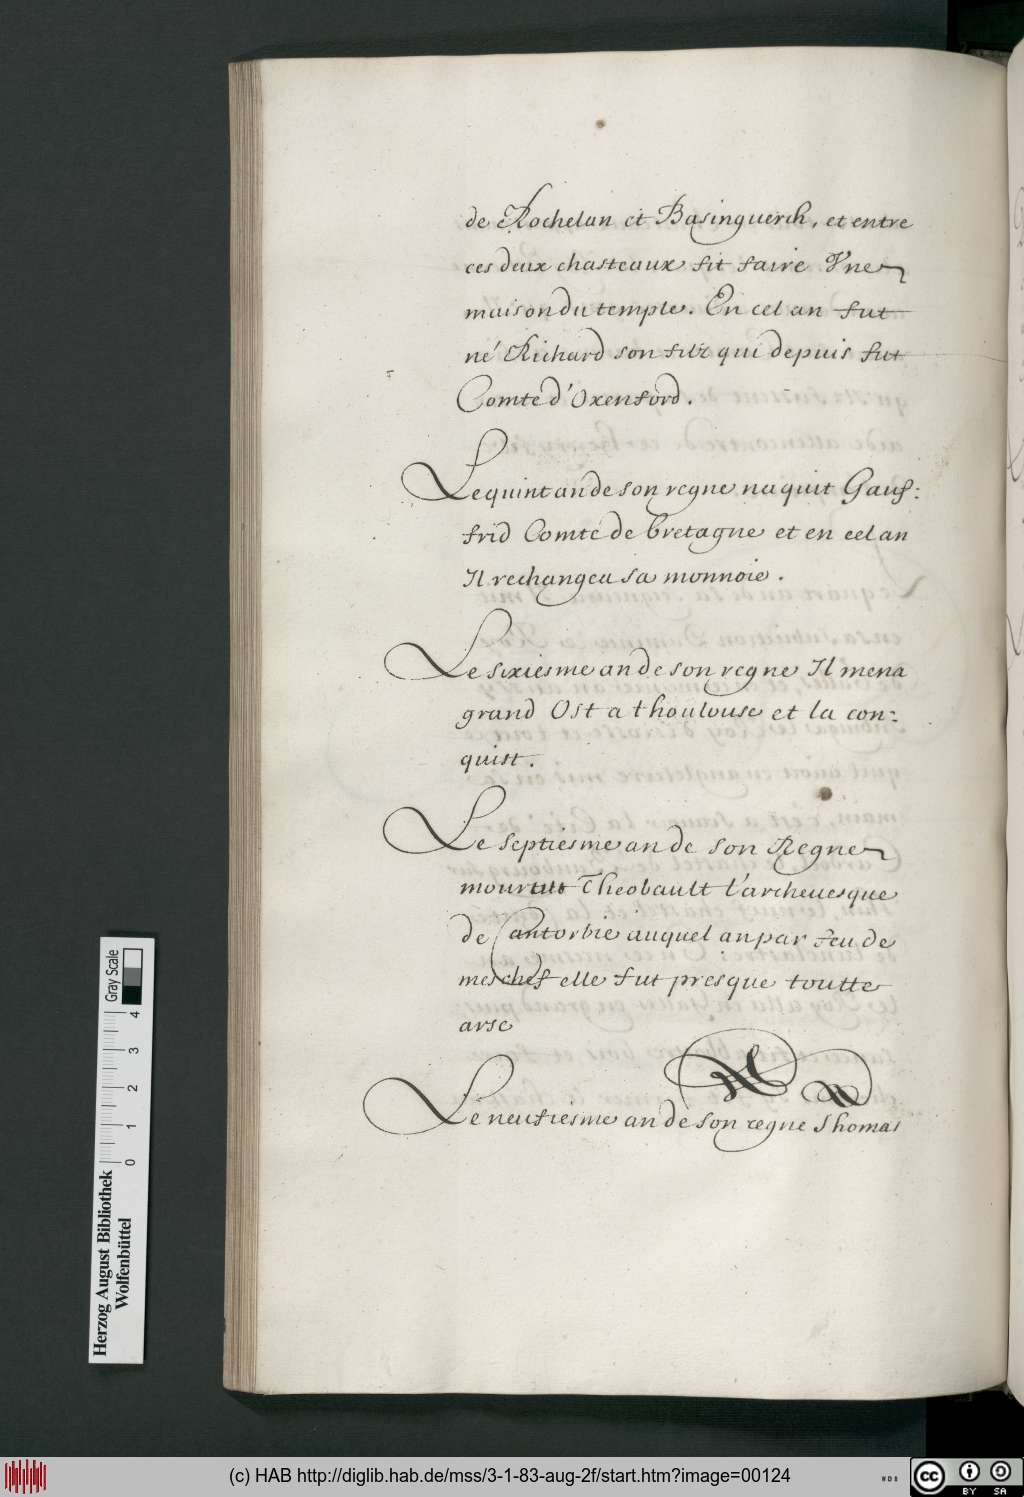 de Rochelan et Basinguerch, et entre
ces deux chasteaux fit faire Vne
maison du temple. En cel an fut
né Richard son filz qui depuis fut
Comte d'Oxenford.
Le quint an de son regne naquit Gauf:
frid Comte de bretagne et en cel an
Il rechangea sa monnoie.
Le sixiesme an de son regne Il mena
grand Ost a thoulouse et la con-:
quist.
Le septiesme an de son Regne
mourut Theobault l'archeuesque
de Cantorbie auquel an par feu de
meschef elle fut presque toutte
arse
Le neufiesme an de son regne Thomas
Gray Scale
0 1 2 3 4
Herzog August Bibliothek
Wolfenbüttel
(c) HAB http://diglib.hab.de/mss/3-1-83-aug-2f/start.htm?image=00124
WDB
cc
BY SA